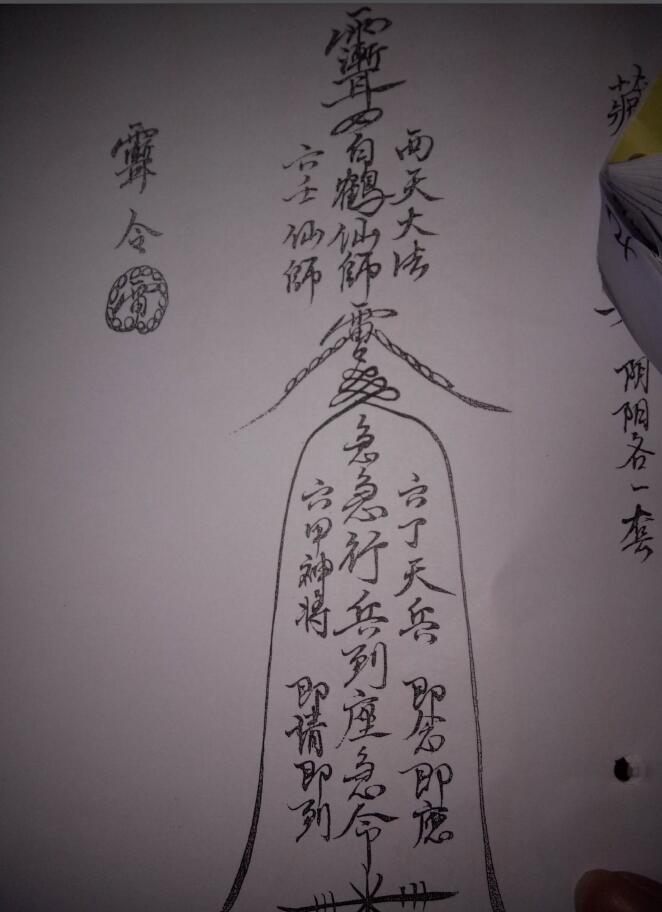 阴阳各一套
西天大法
白鶴仙師
六壬仙師
六丁天兵 即念即應
急急行兵到座急令
六甲神將 即請即到
令